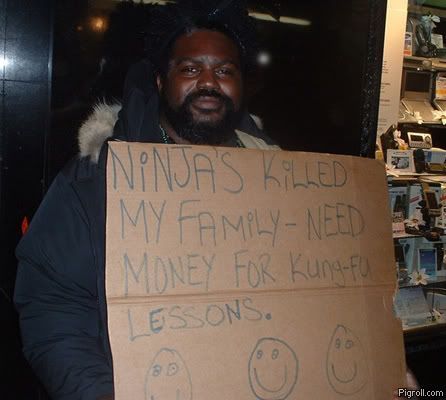 NiNJA'S KiLLED
MY FAMiLY - NEED
MONEY FOR KuNG-Fu
LESSONS.
Pigroll.com